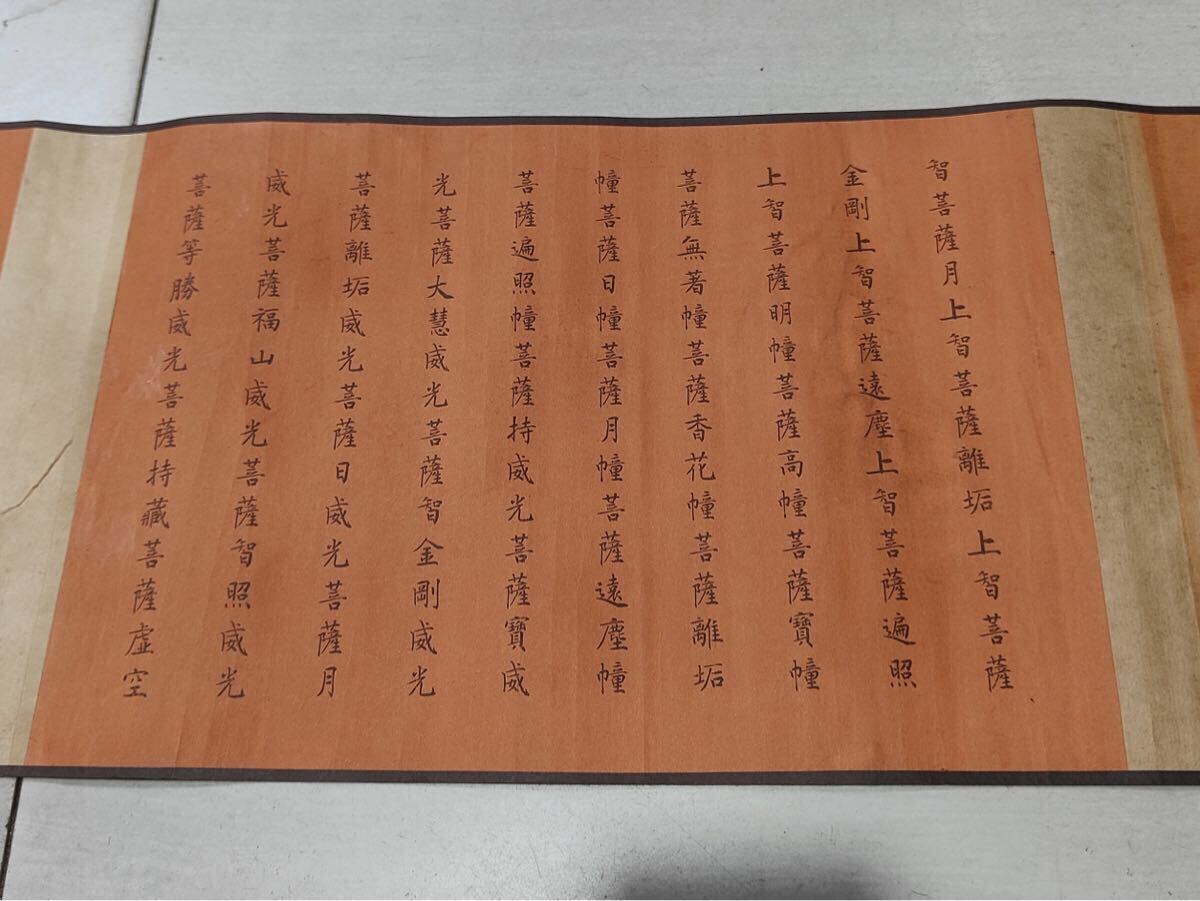 智菩薩月上智菩薩離垢上智菩薩
金剛上智菩薩遠塵上智菩薩遍照
上智菩薩明幢菩薩高幢菩薩寶幢
菩薩無著幢菩薩香花幢菩薩離垢
幢菩薩日幢菩薩月幢菩薩遠塵幢
菩薩遍照幢菩薩持威光菩薩寶威
光菩薩大慧威光菩薩智金剛威光
菩薩離垢威光菩薩日威光菩薩月
威光菩薩福山威光菩薩智照威光
菩薩等勝威光菩薩持藏菩薩虛空